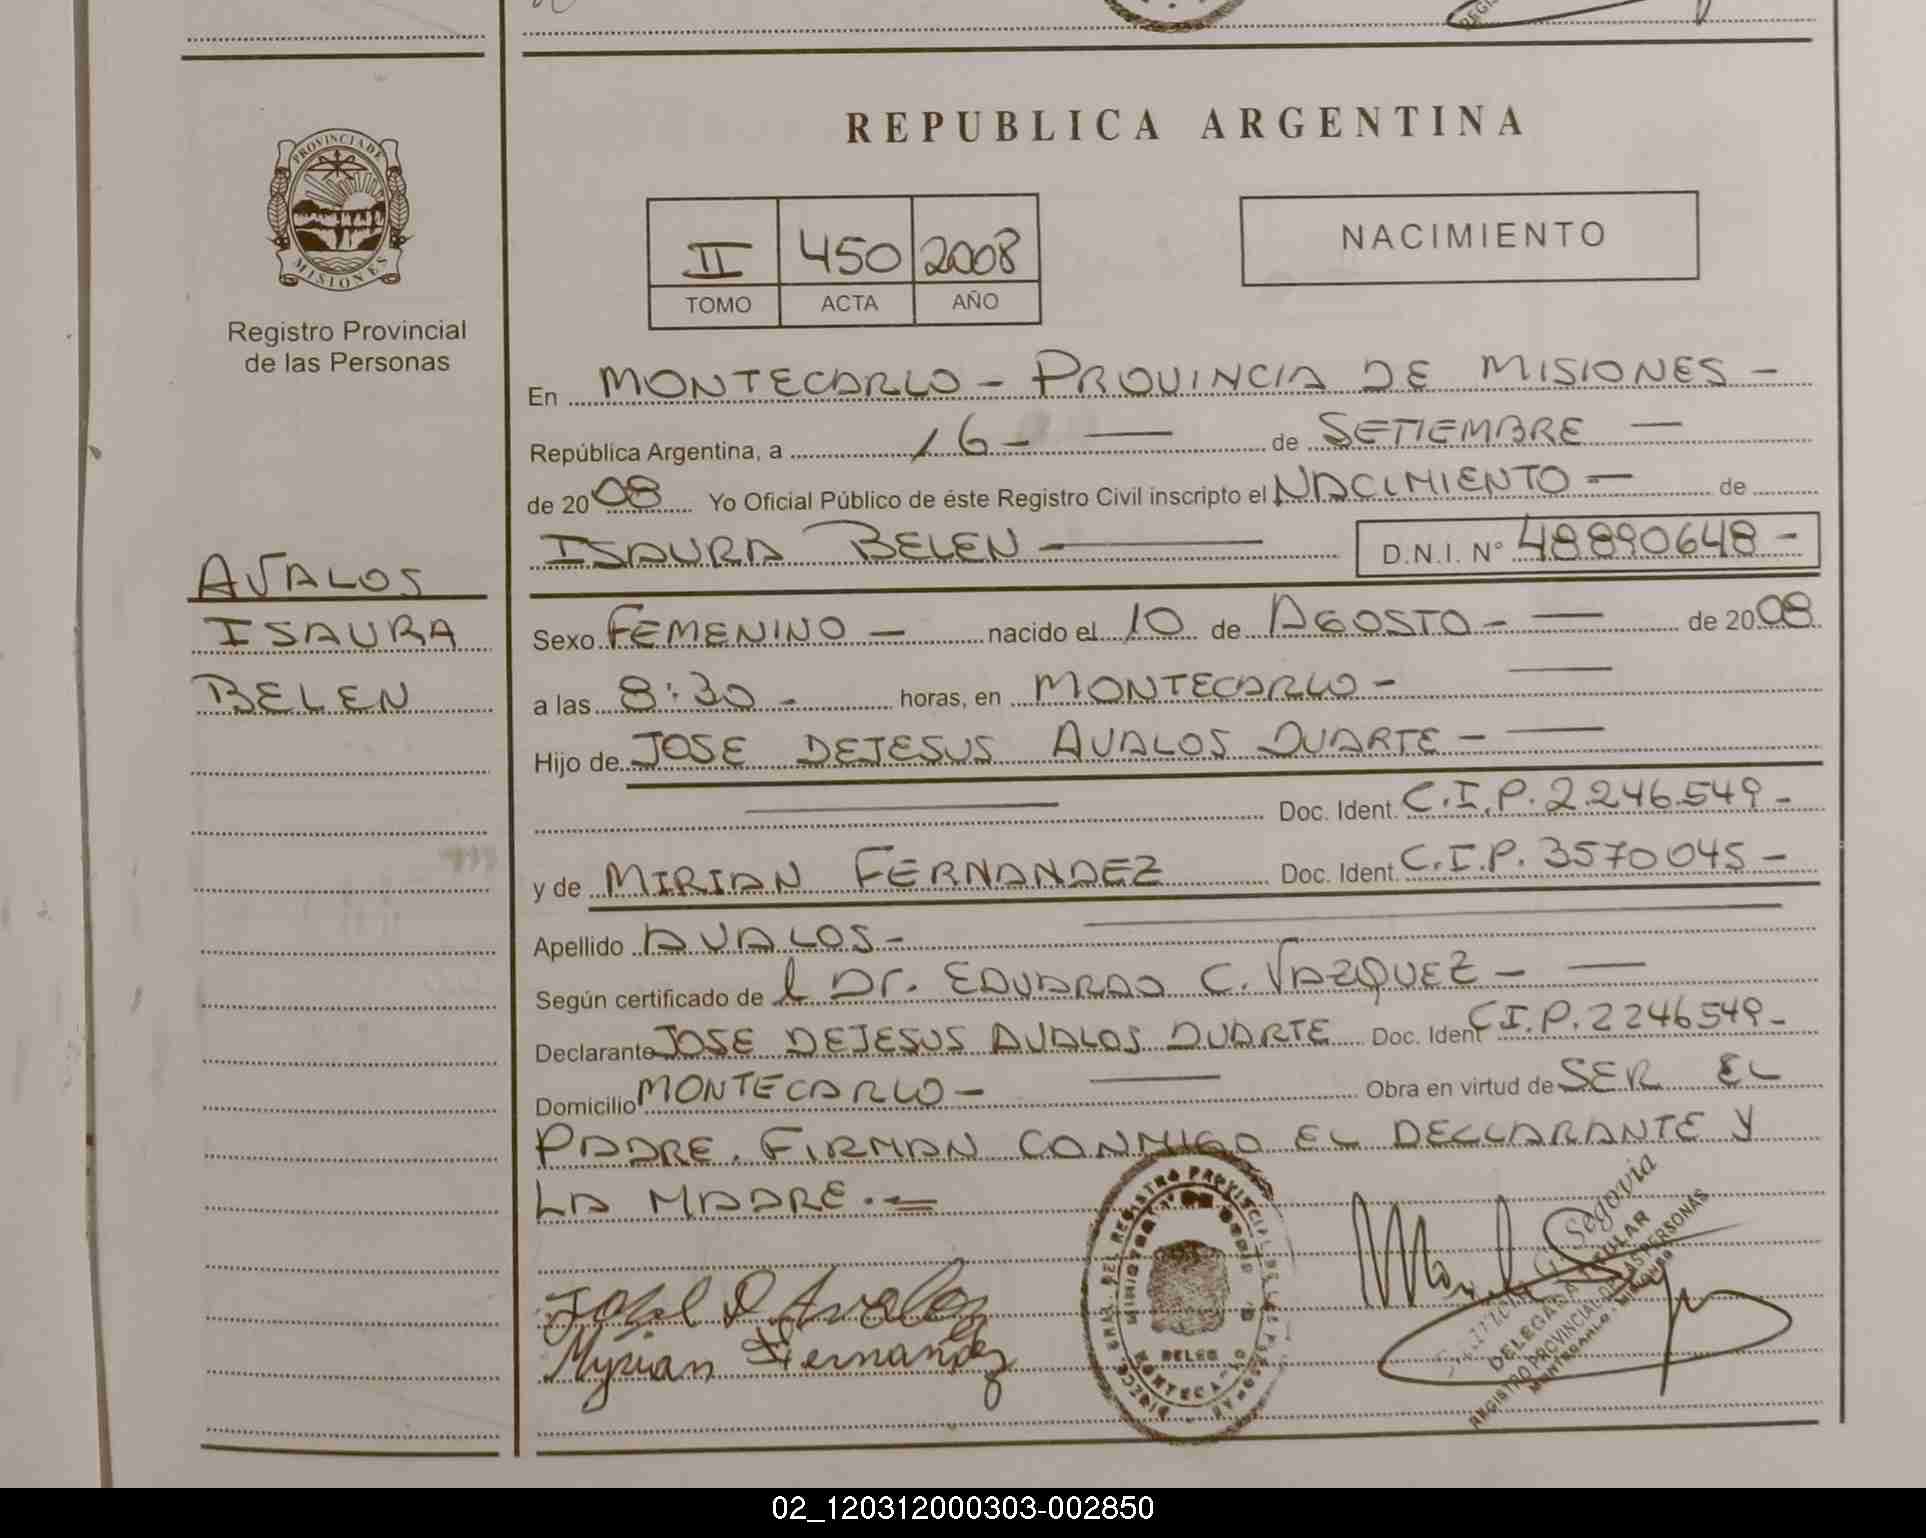 REPUBLICA ARGENTINA
PROVINCIA DE
MISIONES
Registro Provincial
de las Personas
II 450 2008
TOMO ACTA AÑO
NACIMIENTO
En MONTECARLO - PROVINCIA DE MISIONES -
República Argentina, a 16 - de SETIEMBRE
de 2008 Yo Oficial Público de éste Registro Civil inscripto el NACIMIENTO - de
ISAURA BELEN - D.N.I. N° 48890648 -
AVALOS
ISAURA
BELEN
Sexo FEMENINO - nacido el 10 de AGOSTO - de 2008
a las 8:30 - horas, en MONTECARLO -
Hijo de JOSE DEJESUS AVALOS DUARTE -
Doc. Ident. C.I.P. 2.246.549 -
y de MIRIAN FERNANDEZ Doc. Ident. C.I.P. 3570045 -
Apellido AVALOS -
Según certificado de l Dr. EDUARDO C. VAZQUEZ -
Declarante JOSE DEJESUS AVALOS DUARTE Doc. Ident C.I.P. 2246549 -
Domicilio MONTECARLO - Obra en virtud de SER EL
PADRE. FIRMAN CONMIGO EL DECLARANTE Y
LA MADRE. -
Jose D Avalos
Myrian Fernandez
Segovia
DELEGADA TITULAR
REGISTRO PROVINCIAL DE LAS PERSONAS
MONTECARLO - MISIONES
02_120312000303-002850